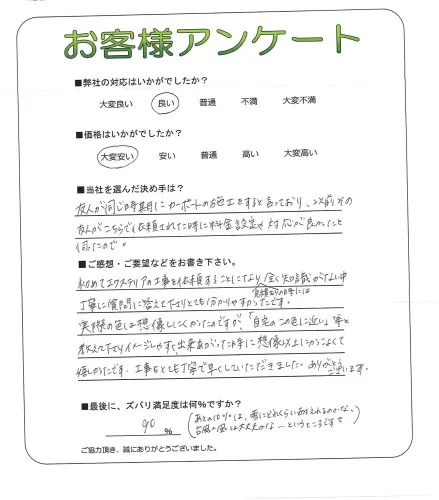 お客様アンケート
■弊社の対応はいかがでしたか?
大変良い 良い 普通 不満 大変不満
■価格はいかがでしたか?
大変安い 安い 普通 高い 大変高い
■当社を選んだ決め手は?
友人が同じ時期にカーポートの施工をすると言っており、以前その
友人がこちらで依頼された時に料金設定や対応が良かったと
伺ったので。
■ご感想・ご要望などをお書き下さい。
初めてエクステリアの工事を依頼することになり全く知識がない中
見積りの時には
丁寧に質問に答えて下さりとても分かりやすかったです。
実際の色は想像しにくかったのですが、「自宅のこの色に近い」等と
教えて下さりイメージしやすく、出来あがった時に想像以上にかっこよくて
嬉しかったです。工事もとても丁寧で早くしていただきました。ありがとうございます。
■最後に、ズバリ満足度は何%ですか?
90 %
(あとの10%は、雪にどれくらい耐えれるのかな、
台風の風は大丈夫かな…というところです)
ご協力頂き、誠にありがとうございました。